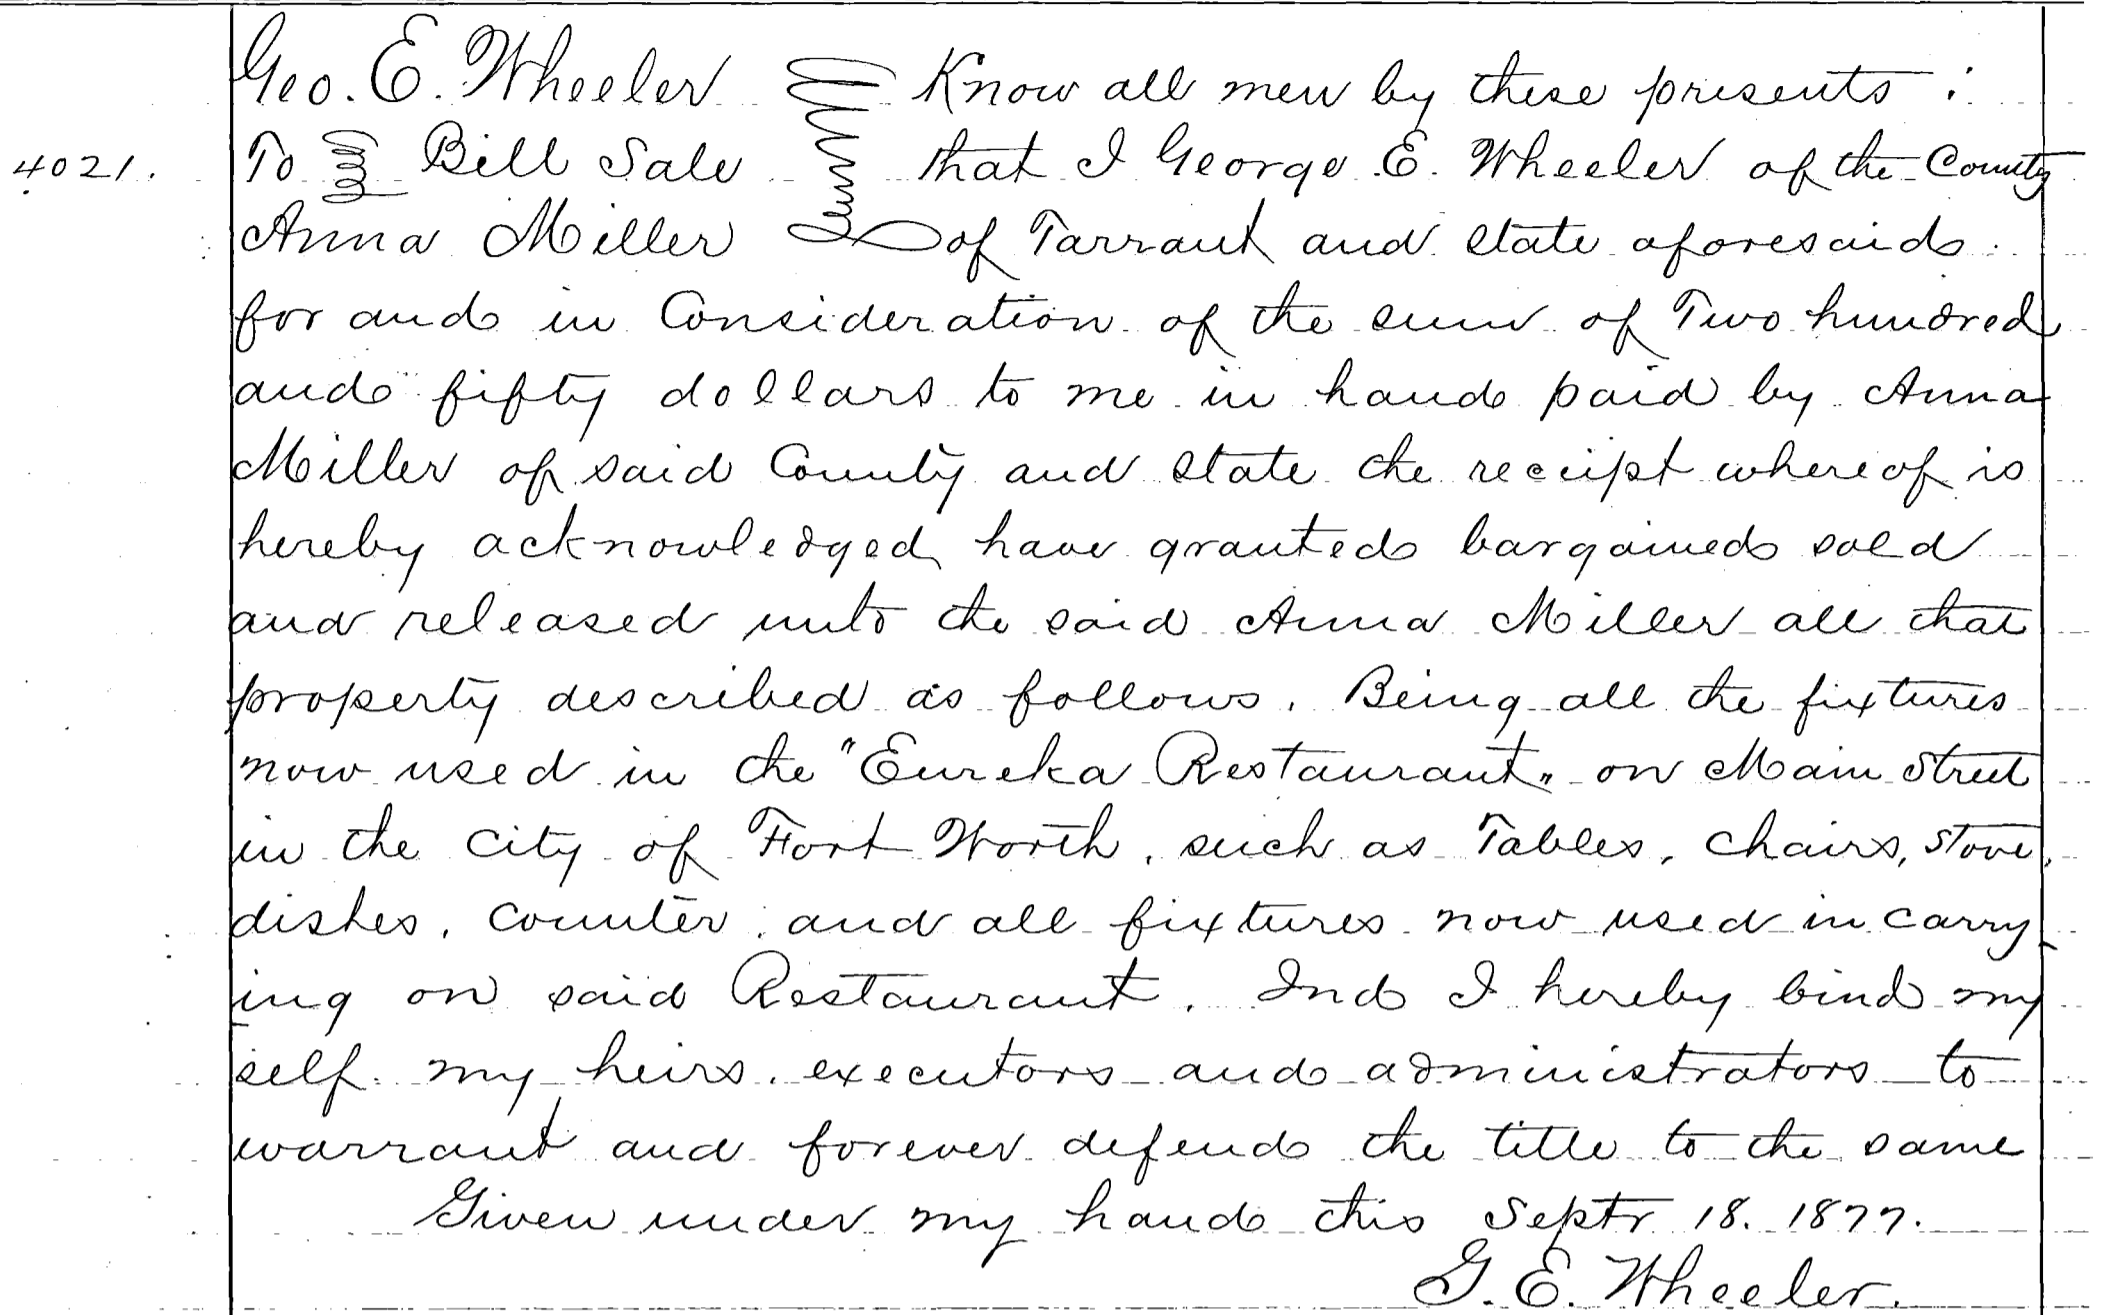 Geo. E. Wheeler Know all men by these presents :
4021. To Bill Sale that I George E. Wheeler of the County
Anna Miller of Tarrant and State aforesaid
for and in Consideration of the sum of Two hundred
and fifty dollars to me in hand paid by Anna
Miller of said County and State the receipt whereof is
hereby acknowledged, have granted bargained sold
and released unto the said Anna Miller all that
property described as follows. Being all the fixtures
now used in the "Eureka Restaurant" on Main Street
in the City of Fort Worth, such as Tables, Chairs, Stove,
dishes, Counter, and all fixtures now used in carry
ing on said Restaurant. And I hereby bind my
self my heirs, executors and administrators to
warrant and forever defend the title to the same
Given under my hand this Septr 18. 1877.
G. E. Wheeler.